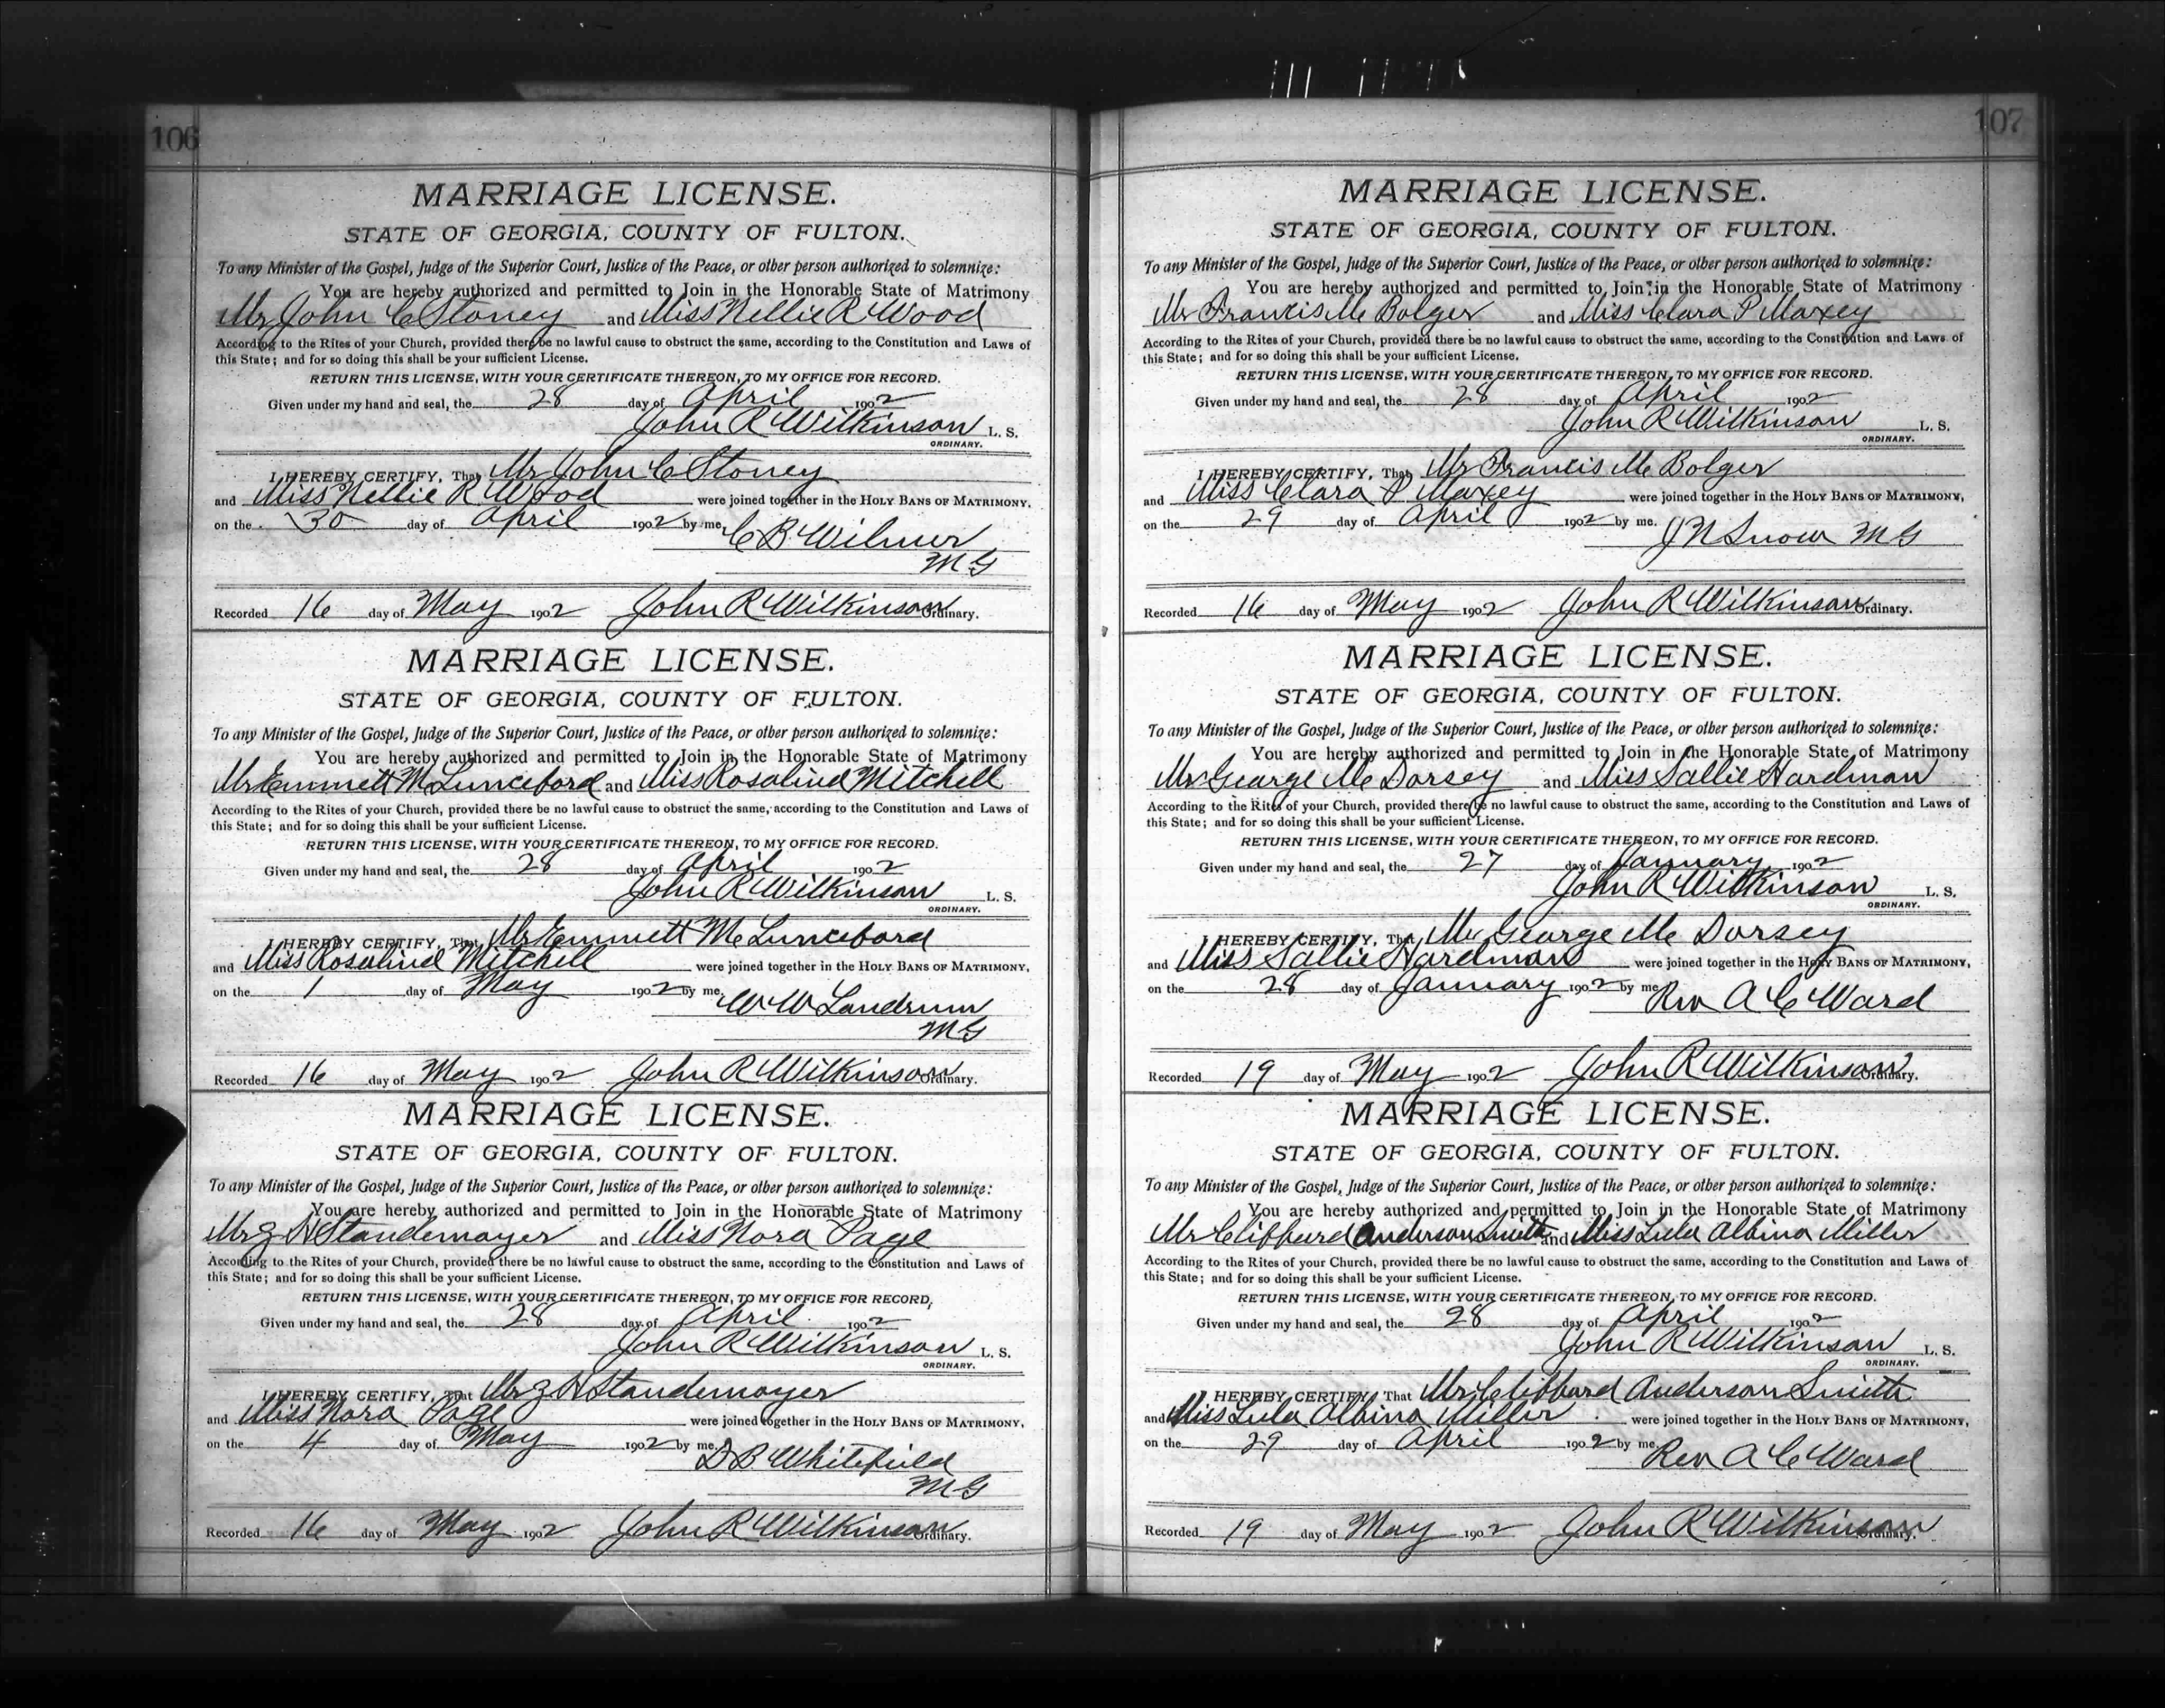 106
MARRIAGE LICENSE.
STATE OF GEORGIA, COUNTY OF FULTON.
To any Minister of the Gospel, Judge of the Superior Court, Justice of the Peace, or other person authorized to solemnize:
You are hereby authorized and permitted to Join in the Honorable State of Matrimony
Mr John C Stoney and Miss Nellie R Wood
According to the Rites of your Church, provided there be no lawful cause to obstruct the same, according to the Constitution and Laws of
this State; and for so doing this shall be your sufficient License.
RETURN THIS LICENSE, WITH YOUR CERTIFICATE THEREON, TO MY OFFICE FOR RECORD.
Given under my hand and seal, the 28 day of April 1902
John R Wilkinson L. S.
ORDINARY.
I HEREBY CERTIFY, That Mr John C Stoney
and Miss Nellie R Wood were joined together in the HOLY BANS OF MATRIMONY,
on the 30 day of April 1902 by me, C B Wilmer
M G
Recorded 16 day of May 1902 John R Wilkinson Ordinary.
MARRIAGE LICENSE.
STATE OF GEORGIA, COUNTY OF FULTON.
To any Minister of the Gospel, Judge of the Superior Court, Justice of the Peace, or other person authorized to solemnize:
You are hereby authorized and permitted to Join in the Honorable State of Matrimony
Mr Emmett M Lunceford and Miss Rosalind Mitchell
According to the Rites of your Church, provided there be no lawful cause to obstruct the same, according to the Constitution and Laws of
this State; and for so doing this shall be your sufficient License.
RETURN THIS LICENSE, WITH YOUR CERTIFICATE THEREON, TO MY OFFICE FOR RECORD.
Given under my hand and seal, the 28 day of April 1902
John R Wilkinson L. S.
ORDINARY.
I HEREBY CERTIFY, That Mr Emmett M Lunceford
and Miss Rosalind Mitchell were joined together in the HOLY BANS OF MATRIMONY,
on the 1 day of May 1902 by me, W W Landrum
M G
Recorded 16 day of May 1902 John R Wilkinson Ordinary.
MARRIAGE LICENSE.
STATE OF GEORGIA, COUNTY OF FULTON.
To any Minister of the Gospel, Judge of the Superior Court, Justice of the Peace, or other person authorized to solemnize:
You are hereby authorized and permitted to Join in the Honorable State of Matrimony
Mr Z H Standemayer and Miss Nora Page
According to the Rites of your Church, provided there be no lawful cause to obstruct the same, according to the Constitution and Laws of
this State; and for so doing this shall be your sufficient License.
RETURN THIS LICENSE, WITH YOUR CERTIFICATE THEREON, TO MY OFFICE FOR RECORD,
Given under my hand and seal, the 28 day of April 1902
John R Wilkinson L. S.
ORDINARY.
I HEREBY CERTIFY, That Mr Z H Standemayer
and Miss Nora Page were joined together in the HOLY BANS OF MATRIMONY,
on the 4 day of May 1902 by me, D B Whitefield
M G
Recorded 16 day of May 1902 John R Wilkinson Ordinary.
107
MARRIAGE LICENSE.
STATE OF GEORGIA, COUNTY OF FULTON.
To any Minister of the Gospel, Judge of the Superior Court, Justice of the Peace, or other person authorized to solemnize:
You are hereby authorized and permitted to Join in the Honorable State of Matrimony
Mr Francis M Bolger and Miss Clara P Maxey
According to the Rites of your Church, provided there be no lawful cause to obstruct the same, according to the Constitution and Laws of
this State; and for so doing this shall be your sufficient License.
RETURN THIS LICENSE, WITH YOUR CERTIFICATE THEREON, TO MY OFFICE FOR RECORD.
Given under my hand and seal, the 28 day of April 1902
John R Wilkinson L. S.
ORDINARY.
I HEREBY CERTIFY, That Mr Francis M Bolger
and Miss Clara P Maxey were joined together in the HOLY BANS OF MATRIMONY,
on the 29 day of April 1902 by me. J N Snow M G
Recorded 16 day of May 1902 John R Wilkinson Ordinary.
MARRIAGE LICENSE.
STATE OF GEORGIA, COUNTY OF FULTON.
To any Minister of the Gospel, Judge of the Superior Court, Justice of the Peace, or other person authorized to solemnize:
You are hereby authorized and permitted to Join in the Honorable State of Matrimony
Mr George M Dorsey and Miss Sallie Hardman
According to the Rites of your Church, provided there be no lawful cause to obstruct the same, according to the Constitution and Laws of
this State; and for so doing this shall be your sufficient License.
RETURN THIS LICENSE, WITH YOUR CERTIFICATE THEREON, TO MY OFFICE FOR RECORD.
Given under my hand and seal, the 27 day of January 1902
John R Wilkinson L. S.
ORDINARY.
I HEREBY CERTIFY, That Mr George M Dorsey
and Miss Sallie Hardman were joined together in the HOLY BANS OF MATRIMONY,
on the 28 day of January 1902 by me Rev A C Ward
Recorded 19 day of May 1902 John R Wilkinson Ordinary.
MARRIAGE LICENSE.
STATE OF GEORGIA, COUNTY OF FULTON.
To any Minister of the Gospel, Judge of the Superior Court, Justice of the Peace, or other person authorized to solemnize:
You are hereby authorized and permitted to Join in the Honorable State of Matrimony
Mr Clifford Anderson Smith and Miss Lula Albina Miller
According to the Rites of your Church, provided there be no lawful cause to obstruct the same, according to the Constitution and Laws of
this State; and for so doing this shall be your sufficient License.
RETURN THIS LICENSE, WITH YOUR CERTIFICATE THEREON, TO MY OFFICE FOR RECORD.
Given under my hand and seal, the 28 day of April 1902
John R Wilkinson L. S.
ORDINARY.
I HEREBY CERTIFY, That Mr Clifford Anderson Smith
and Miss Lula Albina Miller were joined together in the HOLY BANS OF MATRIMONY,
on the 29 day of April 1902 by me Rev A C Ward
Recorded 19 day of May 1902 John R Wilkinson Ordinary.